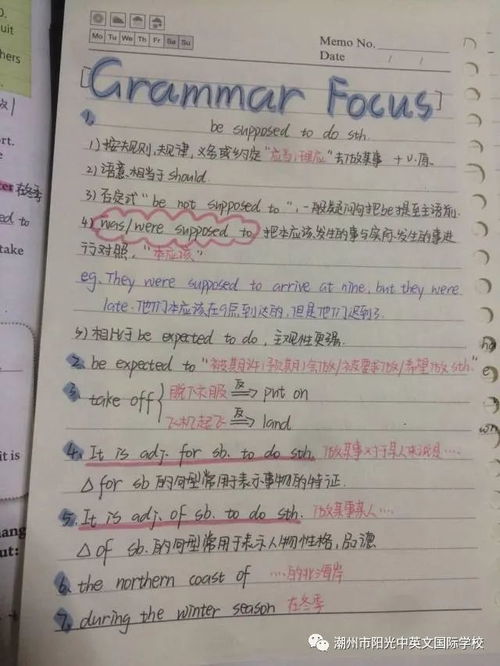 Mo Tu We Th Fr Sa Su
Memo No.
Date / /
[Grammar Focus]
1.
be supposed to do sth.
1) 按共规则,规律,义务或约定“应当/理应”去做某事 + v.原
2) 语意相当于should.
3) 否定式“be not supposed to”,一般疑问句把be提至主语前.
4) was/were supposed to 把本应该发生的事与实际发生的事进
行对照,“本应该”
eg. They were supposed to arrive at nine, but they were
late. 他们本应该在9点到达的,但是他们迟到了.
5) 相比于be expected to do, 主观性更强.
2. be expected to “被期许/预期会做/被要求做/希望做sth.”
3. take off 脱下衣服 反 ⇒ put on
飞机起飞 反 ⇒ land
4. It is adj. for sb. to do sth. 做某事对于某人来说是……
△ for sb. 的句型常用于表示事物的特征.
5. It is adj. of sb. to do sth. 做某事某人……
△ of sb. 的句型常用于表示人物性格,品德
6. the northern coast of ……的北海岸
7. during the winter season 在冬季
uit
hers
rt.
在冬季
ed to
take
it is
ut:
潮州市阳光中英文国际学校